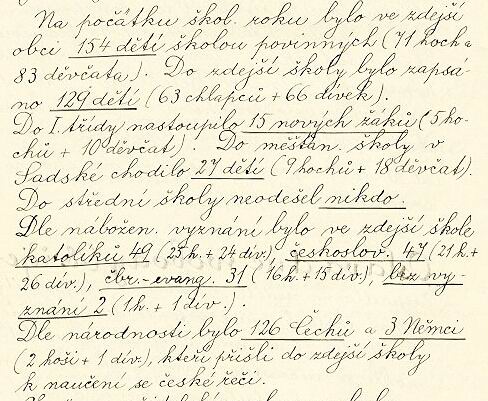 Na počátku škol. roku bylo ve zdejší
obci 154 dětí školou povinných (71 hoch a
83 děvčata). Do zdejší školy bylo zapsá-
no 129 dětí (63 chlapců + 66 dívek).
Do I. třídy nastoupilo 15 nových žáků (5 ho-
chů + 10 děvčat). Do měšťan. školy v
Sadské chodilo 27 dětí (9 hochů + 18 děvčat).
Do střední školy neodešel nikdo.
Dle nábožen. vyznání bylo ve zdejší škole
katolíků 49 (25 h. + 24 dív.), českoslov. 47 (21 h. +
26 dív.), čbr.-evang. 31 (16 h. + 15 dív.), bez vy-
znání 2 (1 h. + 1 dív.).
Dle národnosti bylo 126 Čechů a 3 Němci
(2 hoši + 1 dív.), kteří přišli do zdejší školy
k naučení se české řeči.